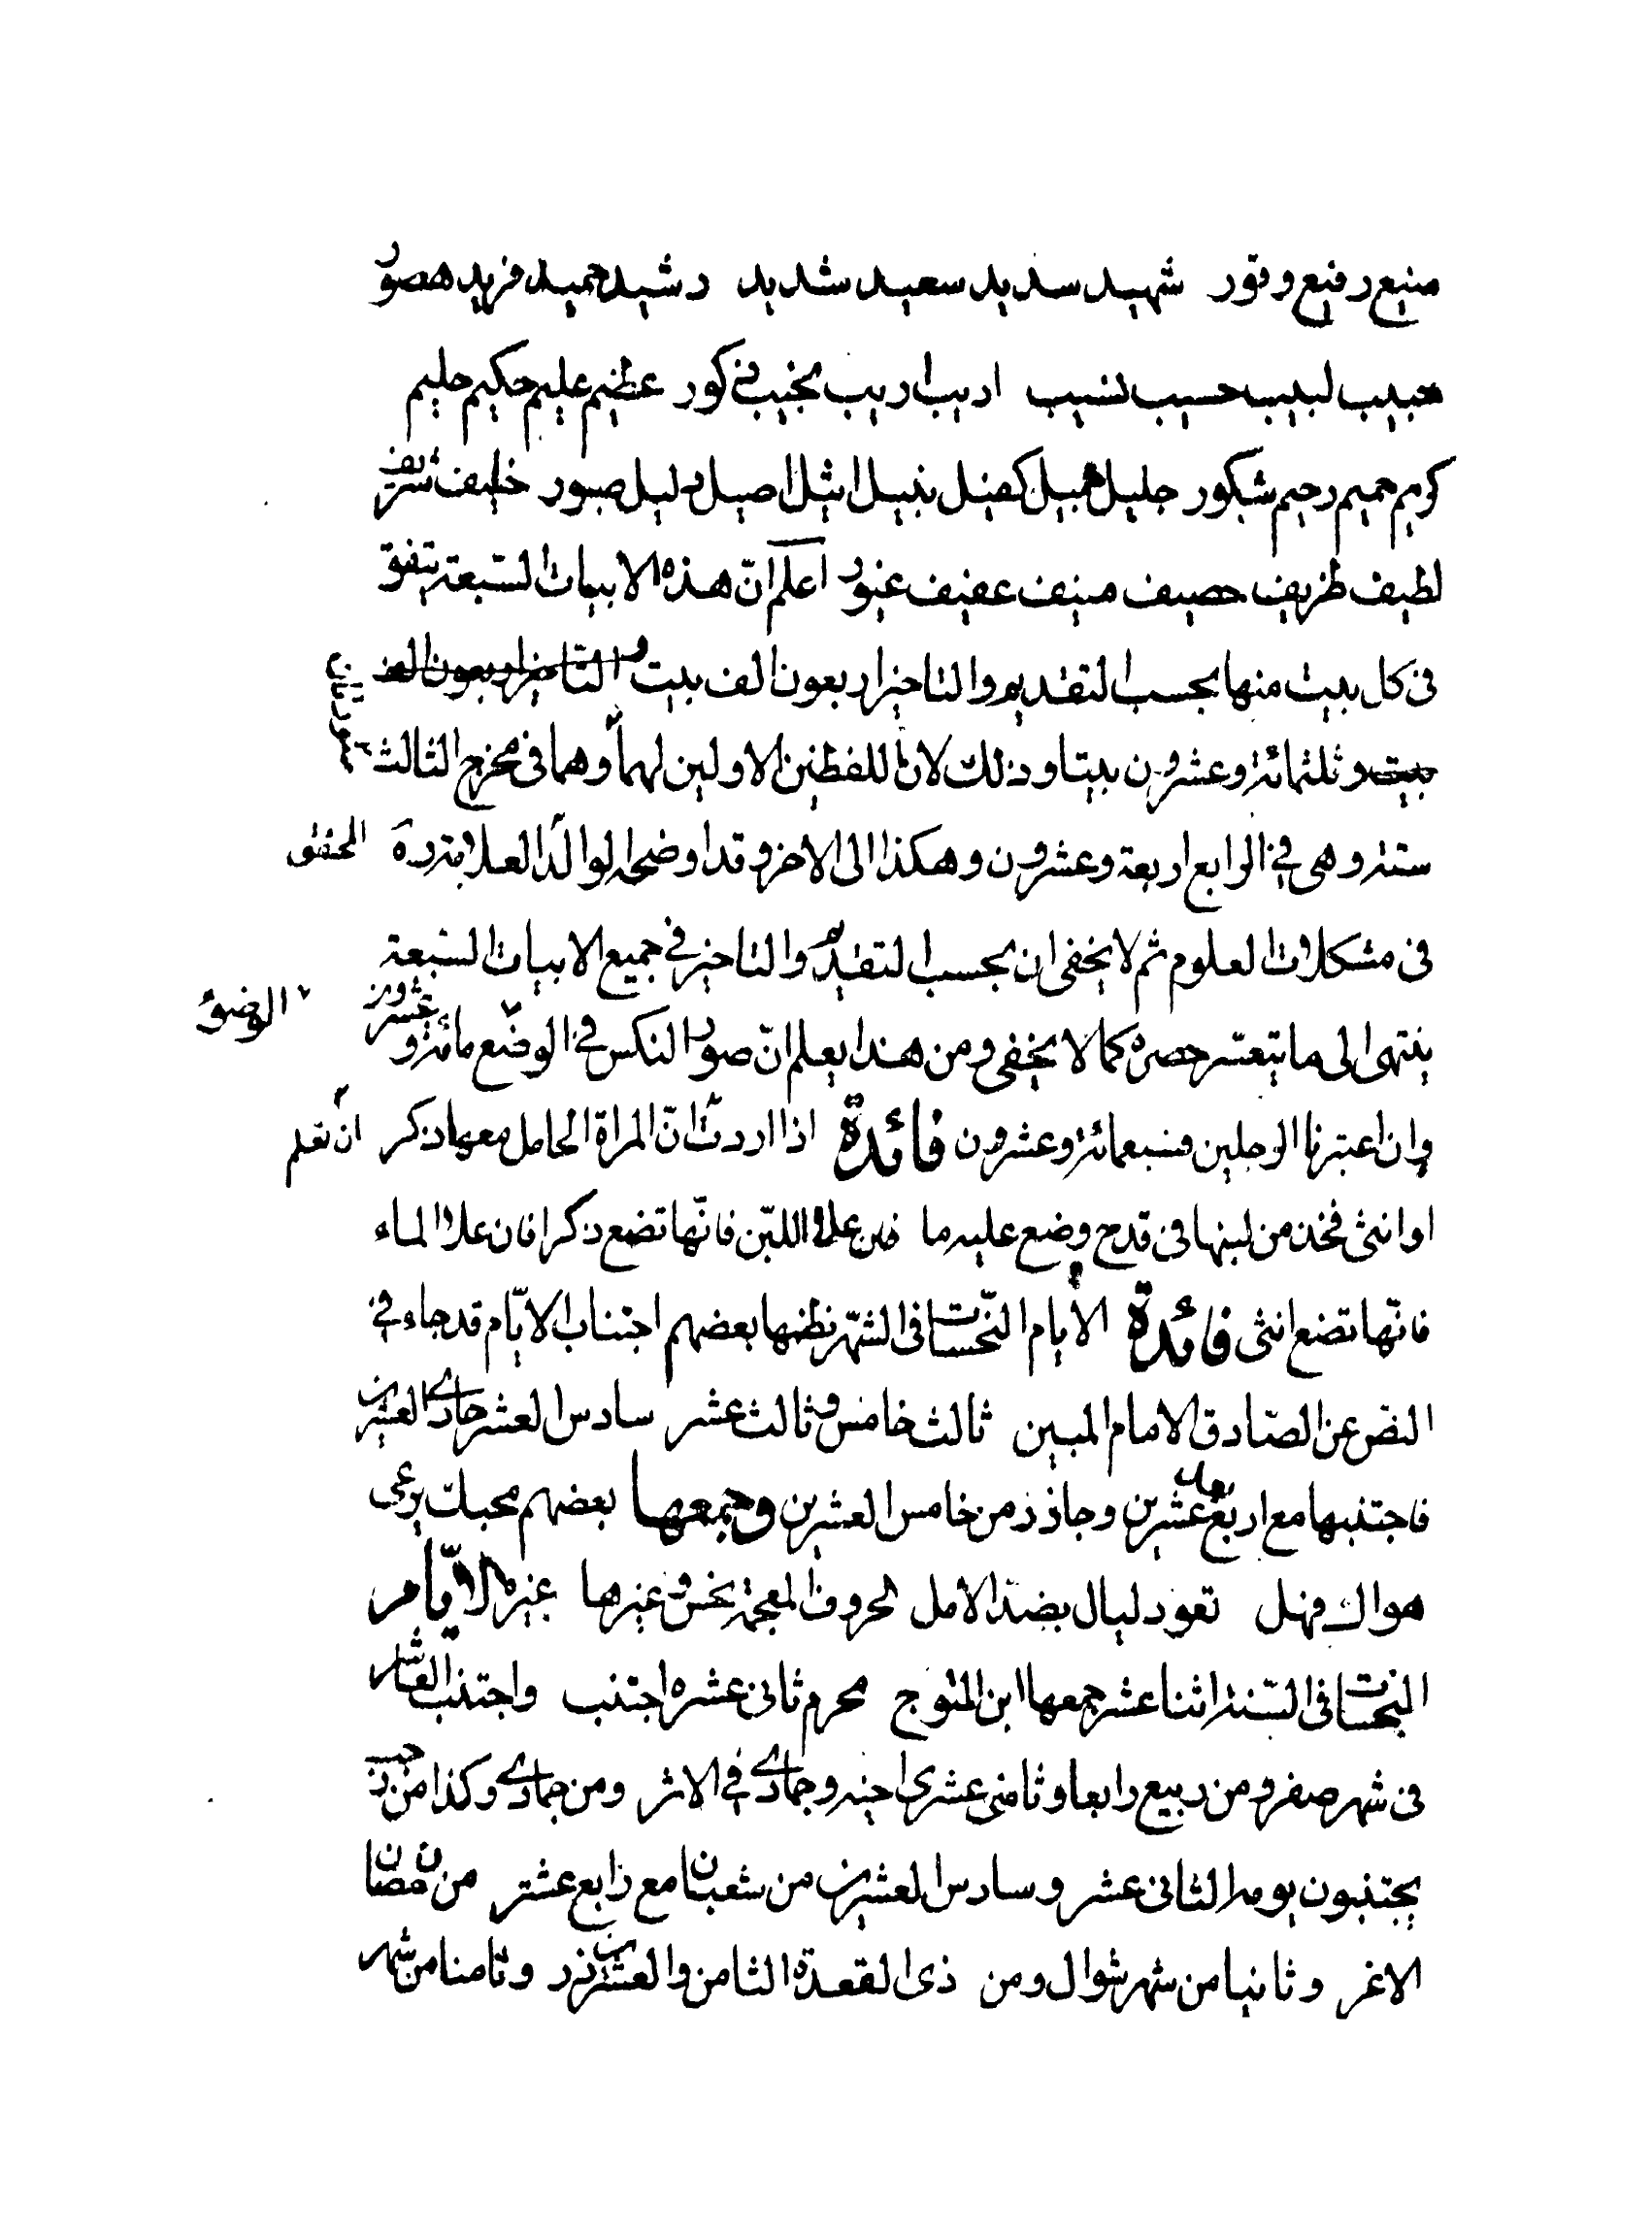 منيع رفيع وقور شهيد سديد سعيد شديد رشيد حميد فريد هصور
حبيب لبيب حسيب نسيب اديب اريب نجيب ذكور عظيم عليم حكيم حليم
كريم حميم رحيم شكور جليل جميل كفيل نبيل اثيل اصيل دليل صبور خليف شريف
لطيف ظريف حصيف منيف عفيف غيور اعلم انّ هذه الابيات السّبعة يتفق
فى كل بيت منها بحسب التقديم والتاخير اربعون الف بيت و التاخير اربعون الف
بيت وثلثمائة وعشرون بيتا وذلك لان للفظين الاولين لهما وهما فى مخرج الثالث صورتان
ستة وهى فى الرابع اربعة وعشرون وهكذا الى الاخر وقد اوضحه الوالد العلامة ره المحقق
فى مشكلات العلوم ثم لا يخفى ان بحسب التقديم والتاخير فى جميع الابيات السّبعة
ينتهى الى ما يتعسّر حصره كما لا يخفى ومن هذا يعلم انّ صور النكس فى الوضع مائة وعشرون الوضوء
وان اعتبرنا الرجلين فسبعمائة وعشرون فائدة اذا اردت انّ المراة الحامل معها ذكر ان تعلم
او انثى فخذ من لبنها فى قدح وضع عليه ما فان علا اللبن فانّها تضع ذكرا فان علا الماء
فانّها تضع انثى فائدة الايام النّحسات فى الشهر نظمها بعضهم اجتناب الايّام قد جاء فى
النصّ عن الصّادق الامام المبين ثالث خامس وثالث عشر سادس العشر حادى العشرين
فاجتنبها مع اربع عشرين وحاذر من خامس العشرين وجمعها بعضهم محبك يرعى
هواك فهل تعود ليال بضدّ الامل الحروف المعجمة نحس وغيرها غيره الايّام
النحسات فى السّنة اثنا عشر جمعها ابن المتوج محرم ثانى عشره اجتنب واجتنب العاشر
فى شهر صفر ومن ربيع رابعا وثامنى عشرى اخيه وجمادى فى الاثر ومن جمادى وكذا من رجب
يجتنبون يومه الثانى عشر وسادس العشرين من شعبان مع رابع عشر من رمضان
الاغر وثانيا من شهر شوال ومن ذى القعدة الثامن والعشرين ذر وثامنا من شهر